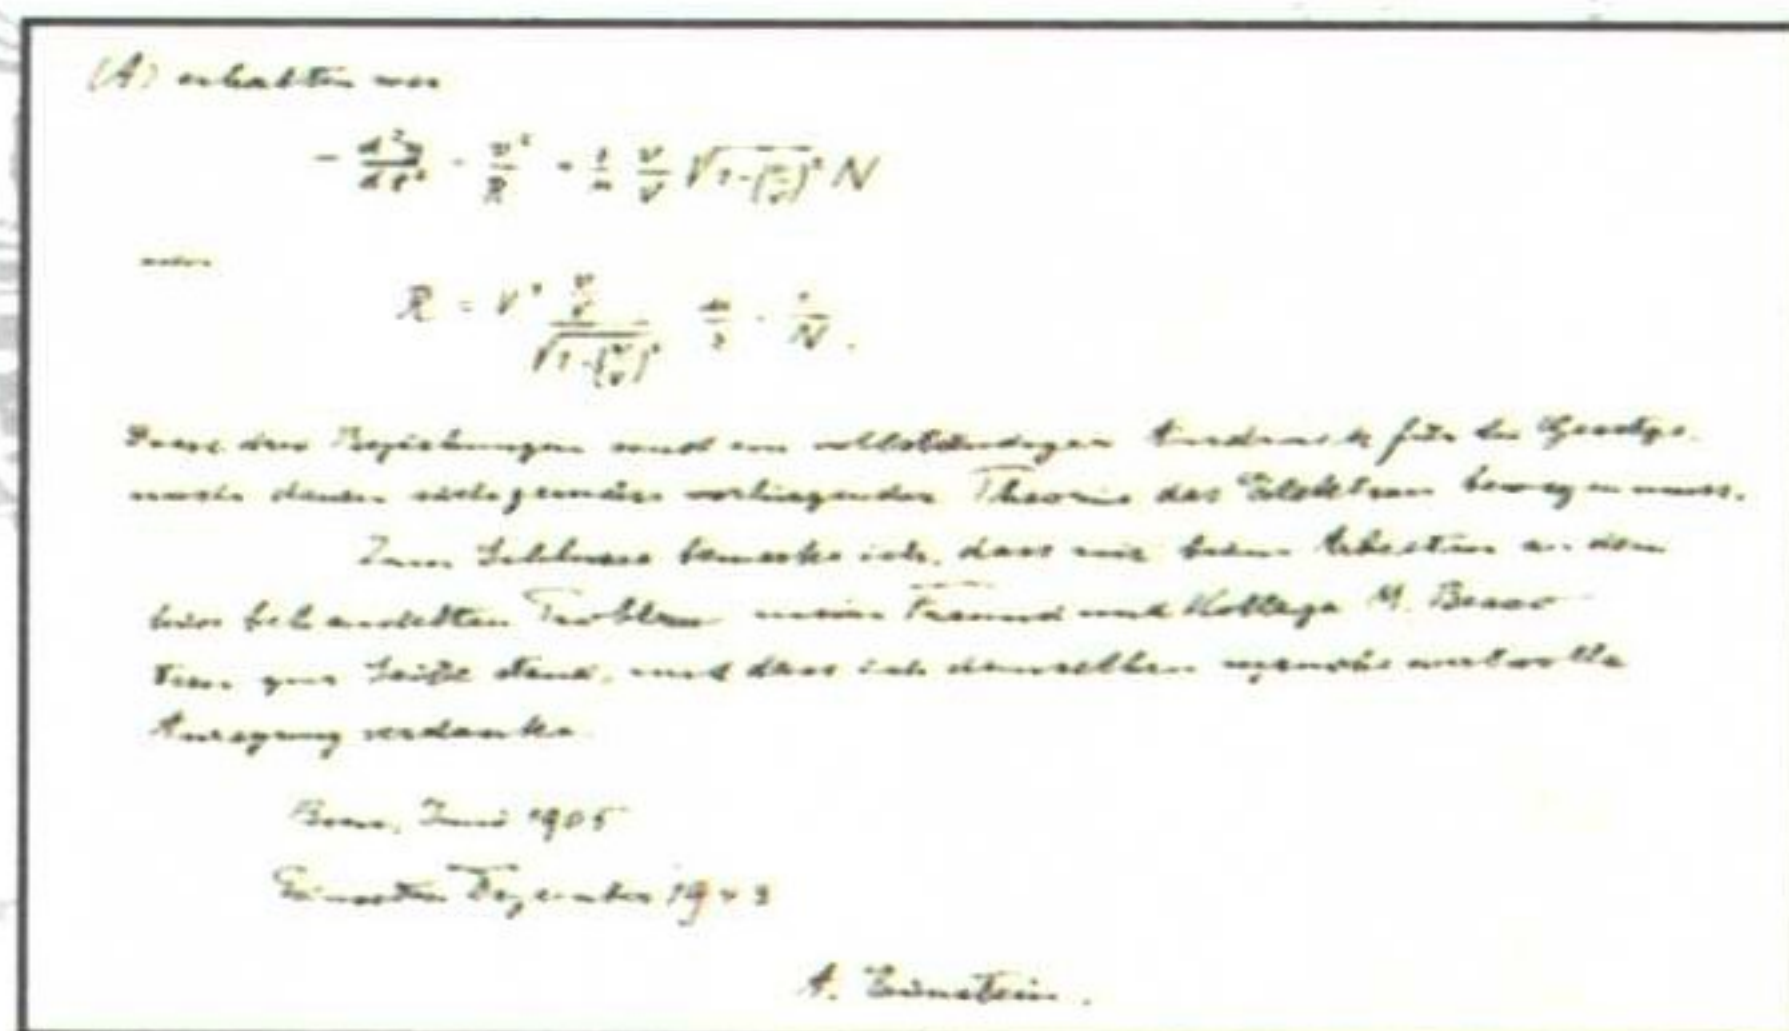 (A) erhalten wir
- d²y/dt² = v²/R = ε/μ v/V √(1-(v/V)²) N
oder
R = V² (v/V)/√(1-(v/V)²) μ/ε · 1/N.
Diese drei Beziehungen sind ein vollständiger Ausdruck für die Gesetze,
nach denen sich gemäss vorliegender Theorie das Elektron bewegen muss.
Zum Schlusse bemerke ich, dass mir beim Arbeiten an dem
hier behandelten Problem mein Freund und Kollege M. Besso
treu zur Seite stand, und dass ich demselben manche wertvolle
Anregung verdanke.
Bern, Juni 1905
Princeton Dezember 1943
A. Einstein.